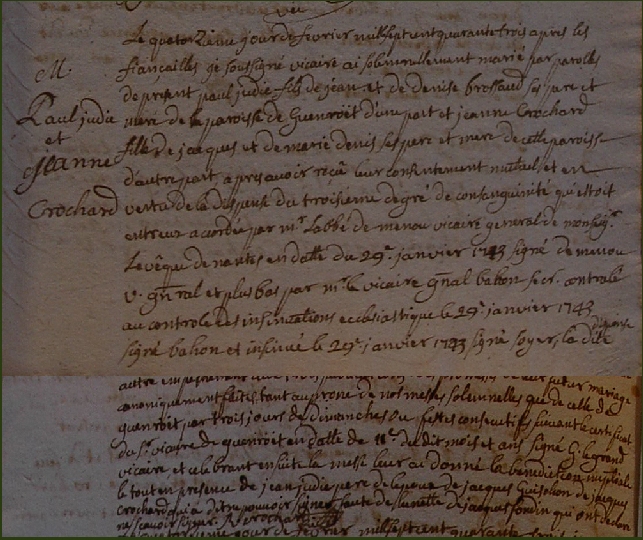 M.
Paul judic
et
Jeanne
Crochard
Le quatorzieme jour de fevrier mil sept cent quarante trois apres les
fiancailles je soussigné vicaire ai solemnellement marié par parolles
de present paul judic fils de jean et de denise brossaud ses pere et
mere de la paroisse de Guenroüet d'une part et jeanne Crochard
fille de jacques et de marie denis ses pere et mere de cette paroisse
d'autre part, apres avoir reçû leur consentement mutuel, et en
vertu de la dispense du troisieme degré de consanguinité qui estoit
entreux accordée par mr. Labbé de menou vicaire general de monseigr.
Levêque de nantes en datte du 29e. janvier 1743 signé de menou
v. gñral et plus bas par mr. le vicaire gñal bahon secr. controlé
au controle des insinuations ecclesiastique le 29e. janvier 1743
signé bahon et insinué le 29e. janvier 1743 signé soyer, la dite
dispense
autre empeschement de leur futur mariage
canoniquement faites tant au prone de nos messes solennelles que de celle de
quenroit par trois jours de dimanches ou festes consecutifs suivant le certificat
du sr. vicaire de quenroit en datte de 11e. du dit mois et ans signé G. legrand
vicaire et celebrant ensuite la messe leur ai donné la benediction nuptiale
le tout en presence de jean judic pere de lepoux de jacques de jacques
Crochard qui a dit ne pouvoir signer faute de lunette de jacques qui ont declaré
ne scavoir signer. Crochard
de fevrier mil sept cent quarante trois